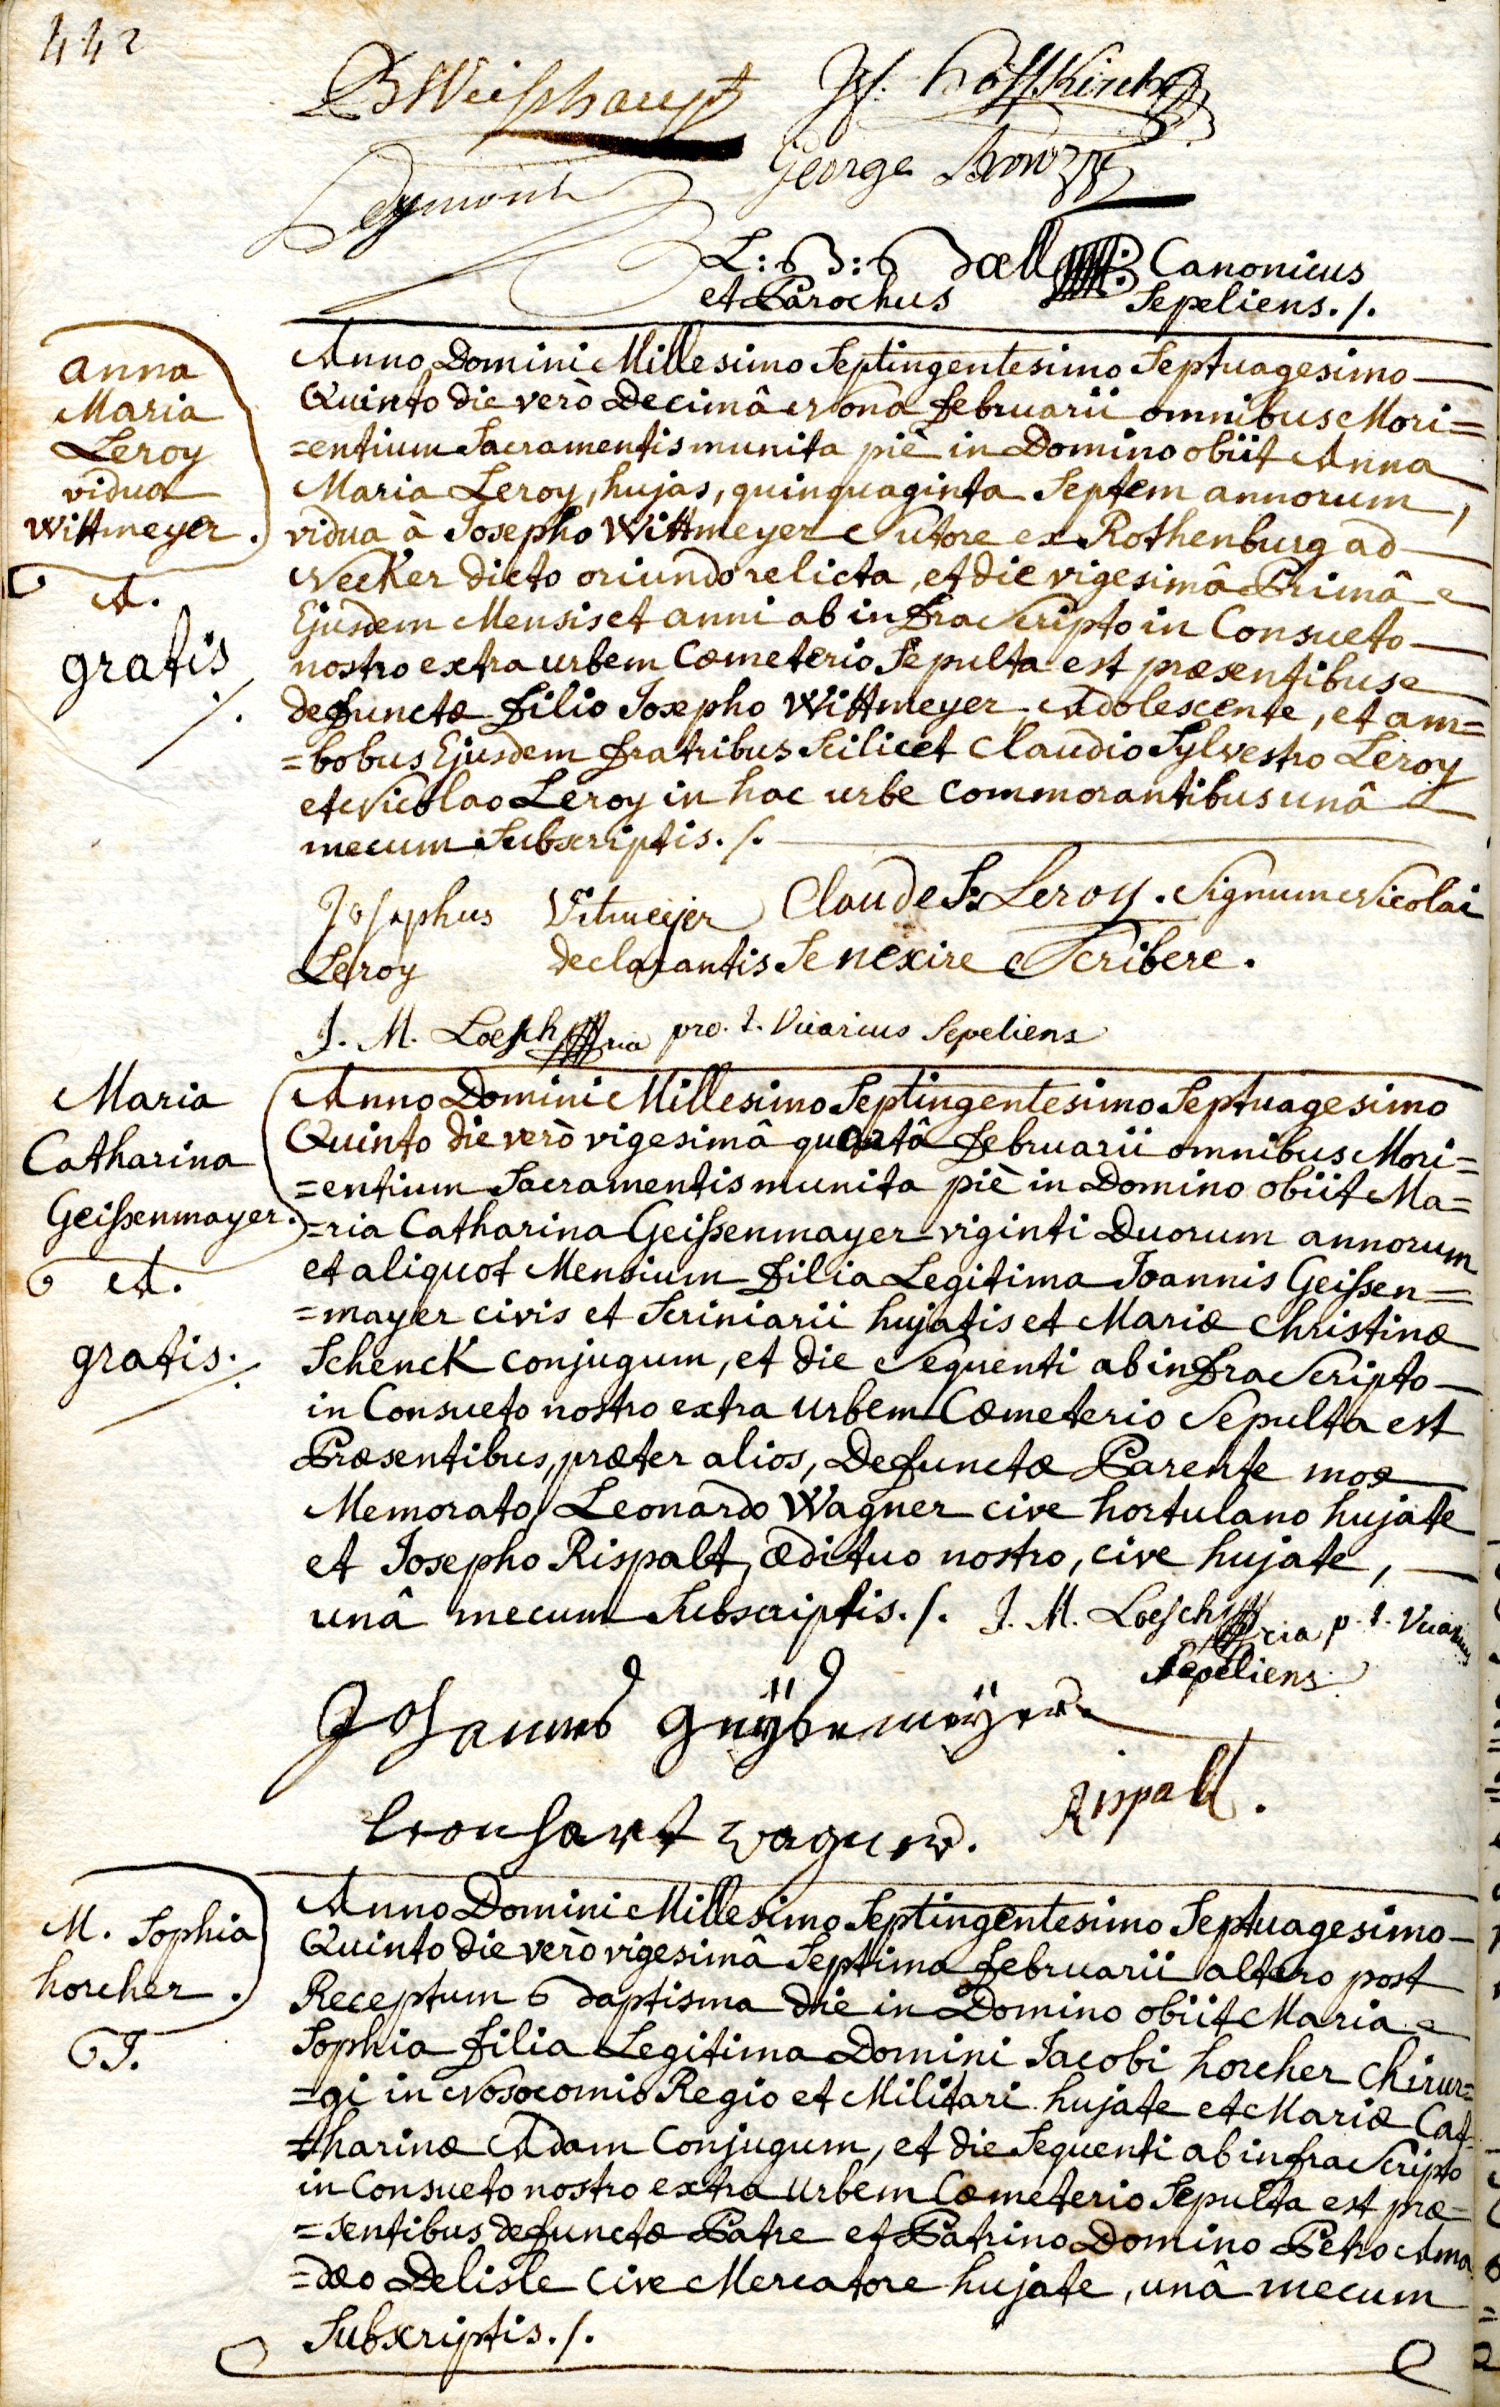 442
Weishaupt
George
Canonicus
et Parochus Sepeliens./.
Anna
Maria
Leroy
vidua
Wittmeyer.
A.
gratis
/.
Anno Domini Millesimo Septingentesimo Septuagesimo
Quinto die verò Decimâ Nona Februarii omnibus Mori=
=entium Sacramentis munita piè in Domino obiit Anna
Maria Leroy, hujas, quinquaginta Septem annorum,
vidua à Josepho Wittmeyer Sutore ex Rothenburg ad
Necker dicto oriundo relicta, et die vigesimâ Primâ
Ejusdem Mensis et anni ab infra Scripto in Consueto
nostro extra urbem Cœmeterio Sepulta est præsentibus
defunctæ Filio Josepho Wittmeyer Adolescente, et am=
=bobus Ejusdem Fratribus Scilicet Claudio Sylvestro Leroy
et Nicolao Leroy in hac urbe commorantibus unâ
mecum Subscriptis./.
Josephus Vitmeijer Claude S: Leroy. Signum Nicolai
Leroy declarantis Se nescire Scribere.
J. M. Loesch pro. t. Vicarius Sepeliens
Maria
Catharina
Geissenmayer.
A.
gratis.
/.
Anno Domini Millesimo Septingentesimo Septuagesimo
Quinto die verò vigesimâ quartâ Februarii omnibus Mori=
=entium Sacramentis munita piè in Domino obiit Ma=
=ria Catharina Geissenmayer viginti Duorum annorum
et aliquot Mensium Filia Legitima Joannis Geissen=
=mayer civis et Scriniarii hujatis et Mariæ Christinæ
Schenck conjugum, et die Sequenti ab infra Scripto
in Consueto nostro extra urbem Cœmeterio Sepulta est
Præsentibus, præter alios, Defunctæ Parente mox
Memorato, Leonardo Wagner cive hortulano hujate
et Josepho Rispalt, ædituo nostro, cive hujate,
unâ mecum Subscriptis./. J. M. Loesch p. t. Vicarius
Sepeliens
Johannes
Rispalt.
leonhart wagner.
M. Sophia
horcher.
J.
Anno Domini Millesimo Septingentesimo Septuagesimo
Quinto die verò vigesimâ Septima Februarii altero post
Receptum baptisma die in Domino obiit Maria
Sophia Filia Legitima Domini Jacobi horcher Chirur=
=gi in Nosocomio Regio et Militari hujate et Mariæ Cat=
=tharinæ Adam Conjugum, et die Sequenti ab infra Scripto
in Consueto nostro extra urbem Cœmeterio Sepulta est præ=
=sentibus defunctæ Patre et Patrino Domino Petro Ama
=dæo Delisle Cive Mercatore hujate, unâ mecum
Subscriptis./.